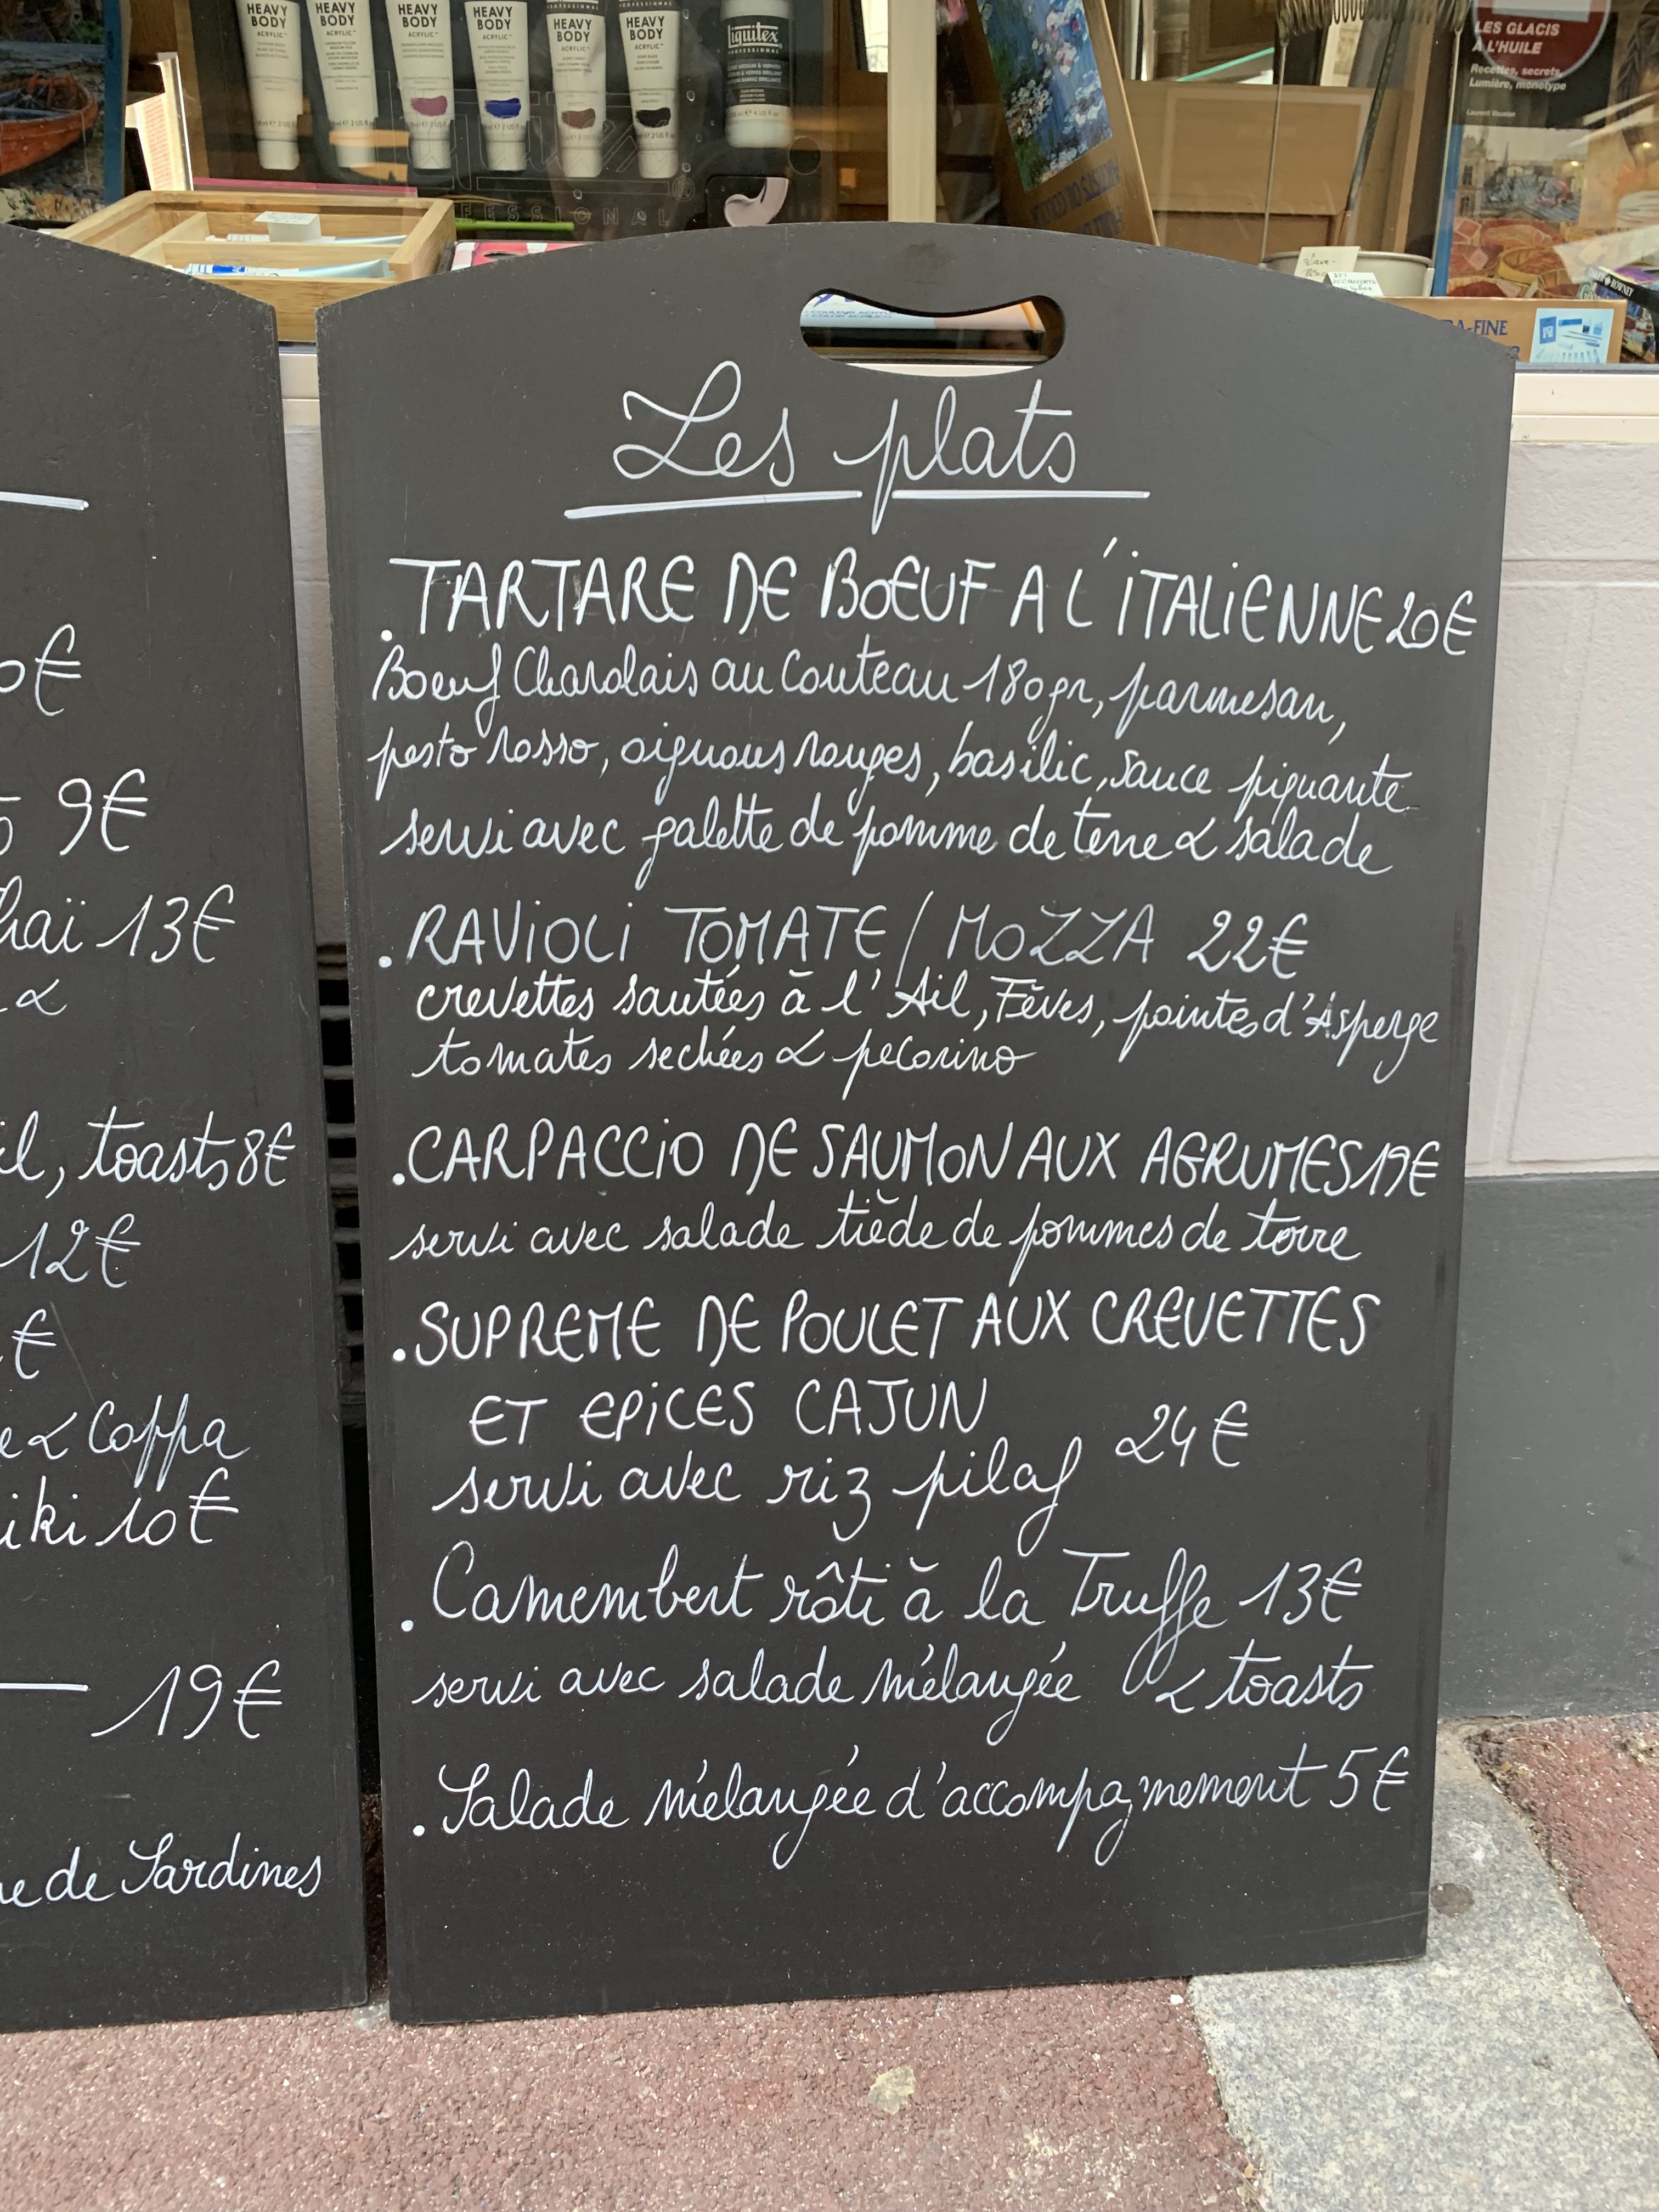 HEAVY BODY ACRYLIC
HEAVY BODY ACRYLIC
HEAVY BODY ACRYLIC
HEAVY BODY ACRYLIC
HEAVY BODY ACRYLIC
HEAVY BODY ACRYLIC
Liquitex
PROFESSIONAL
LES GLACIS
À L'HUILE
Recettes, secrets,
Lumière, monotype
FESSIONAL
A-FINE
Les plats
. TARTARE DE BOEUF A L'ITALIENNE 20€
Boeuf Charolais au Couteau 180gr, parmesan,
pesto rosso, oignons rouges, basilic, sauce piquante
servi avec galette de pomme de terre & salade
. RAVIOLI TOMATE / MOZZA 22€
crevettes sautées à l'Ail, Fèves, pointes d'Asperge
tomates sechées & pecorino
. CARPACCIO DE SAUMON AUX AGRUMES 19€
servi avec salade tiède de pommes de terre
. SUPREME DE POULET AUX CREVETTES
ET EPICES CAJUN 24€
servi avec riz pilaf
. Camembert rôti à la Truffe 13€
servi avec salade mélangée & toasts
. Salade mélangée d'accompagnement 5€
0€
9€
haï 13€
&
il, toasts 8€
12€
€
e & Coppa
iki 10€
19€
ue de Sardines